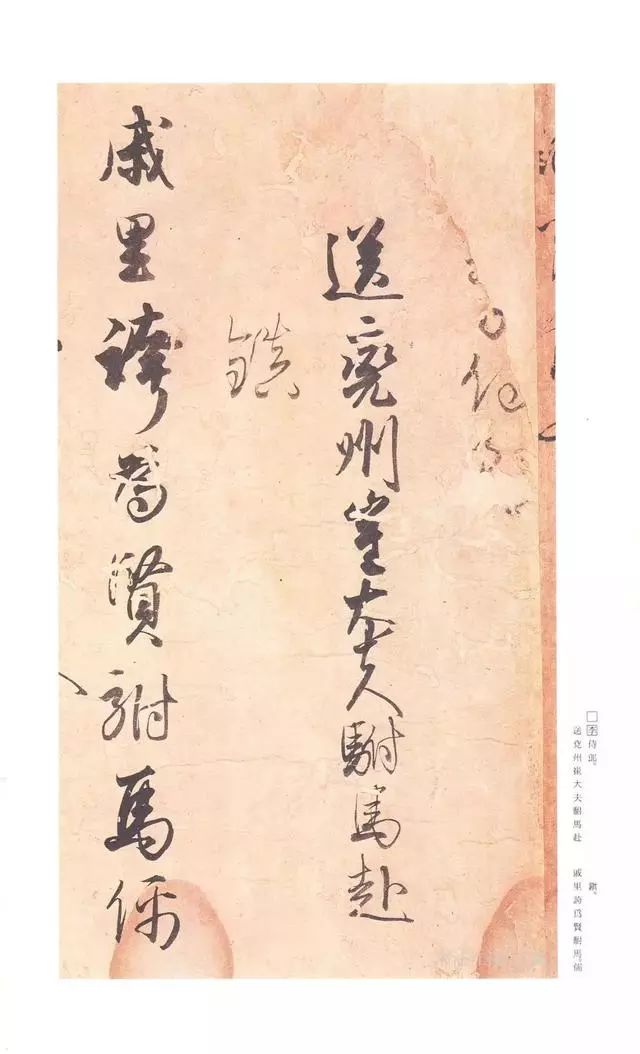 侍郎
送兗州崔大夫駙馬赴
鎮
戚里誇為賢駙馬儒
□李侍郎。
送兗州崔大夫駙馬赴
鎮。
戚里誇爲賢駙馬。儒